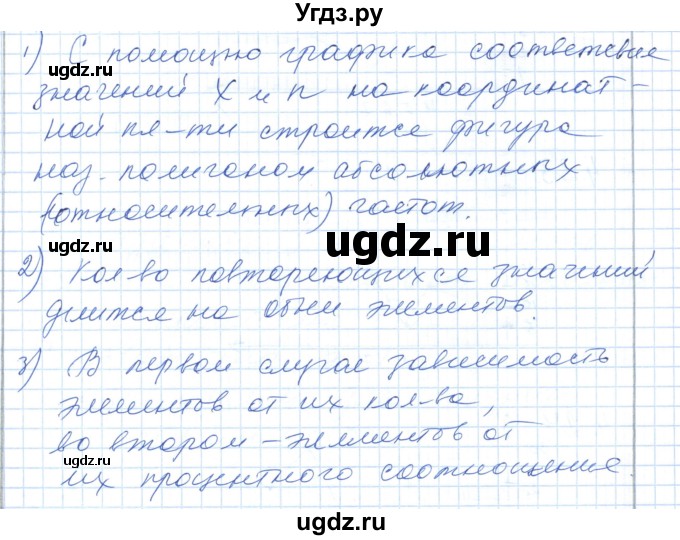 Угдз.ру
1) С помощью графика соответствие
ugdz.ru ugdz.ru
значений X и n на координат-
ной пл-ти строится фигура
наз. полигоном абсолютных
(относительных) частот.
ugdz.ru ugdz.ru
2) Кол-во повторяющихся значений
делится на общ элементов.
ugdz.ru ugdz.ru
3) В первом случае зависимость
элементов от их кол-ва,
во втором – элементов от
ugdz.ru ugdz.ru
их процентного соотношения.
ugdz.ru